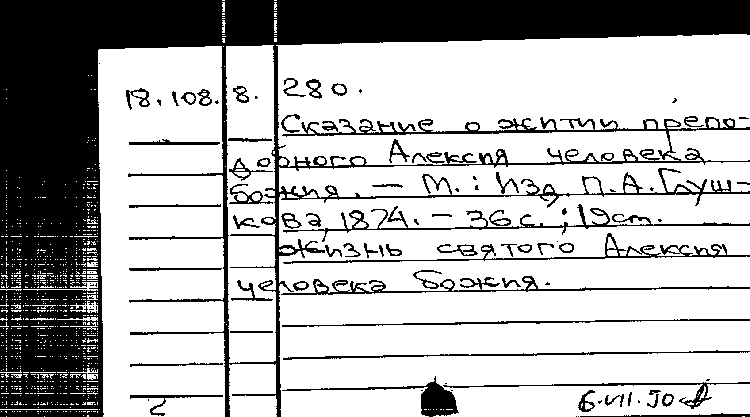 18.108.8.280.
Сказание о житии препо-
добного Алексия человека
божия. — М.: Изд. П.А. Глуш-
кова, 1874. — 36 с.; 19 cm.
Жизнь святого Алексия
человека божия.
2 6.VII.90